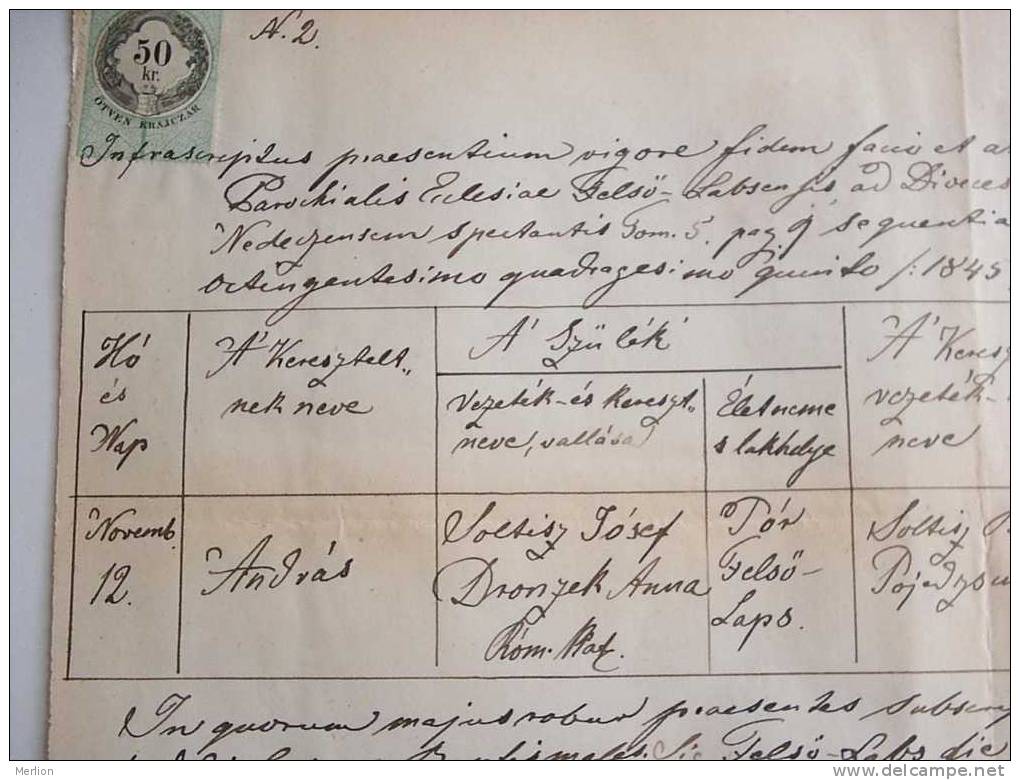 N. 2.
50
kr.
ÖTVEN KRAJCZÁR
Infrascriptus praesentium vigore fidem facio et a
Parochialis Eclesiae Felső-Labsensis ad Dioeces
Nedeczensem spectantis Tom. 5. pag 9 sequentia
octingentesimo quadragesimo quinto /: 1845
Hó
és
Nap
A' Keresztelt„
nek neve
A' Szülék
Vezeték-és Kereszt„
neve, vallása
Életneme
s lakhelye
A' Keresz
vezeték-
neve
Novemb.
12.
András
Soltisz Jósef
Dronzek Anna
Róm. Kat.
Pór
Felső-
Laps.
Soltisz
In quorum majus robur praesentes subscrip
Felső-Labs die
Merlion
www.delcampe.net